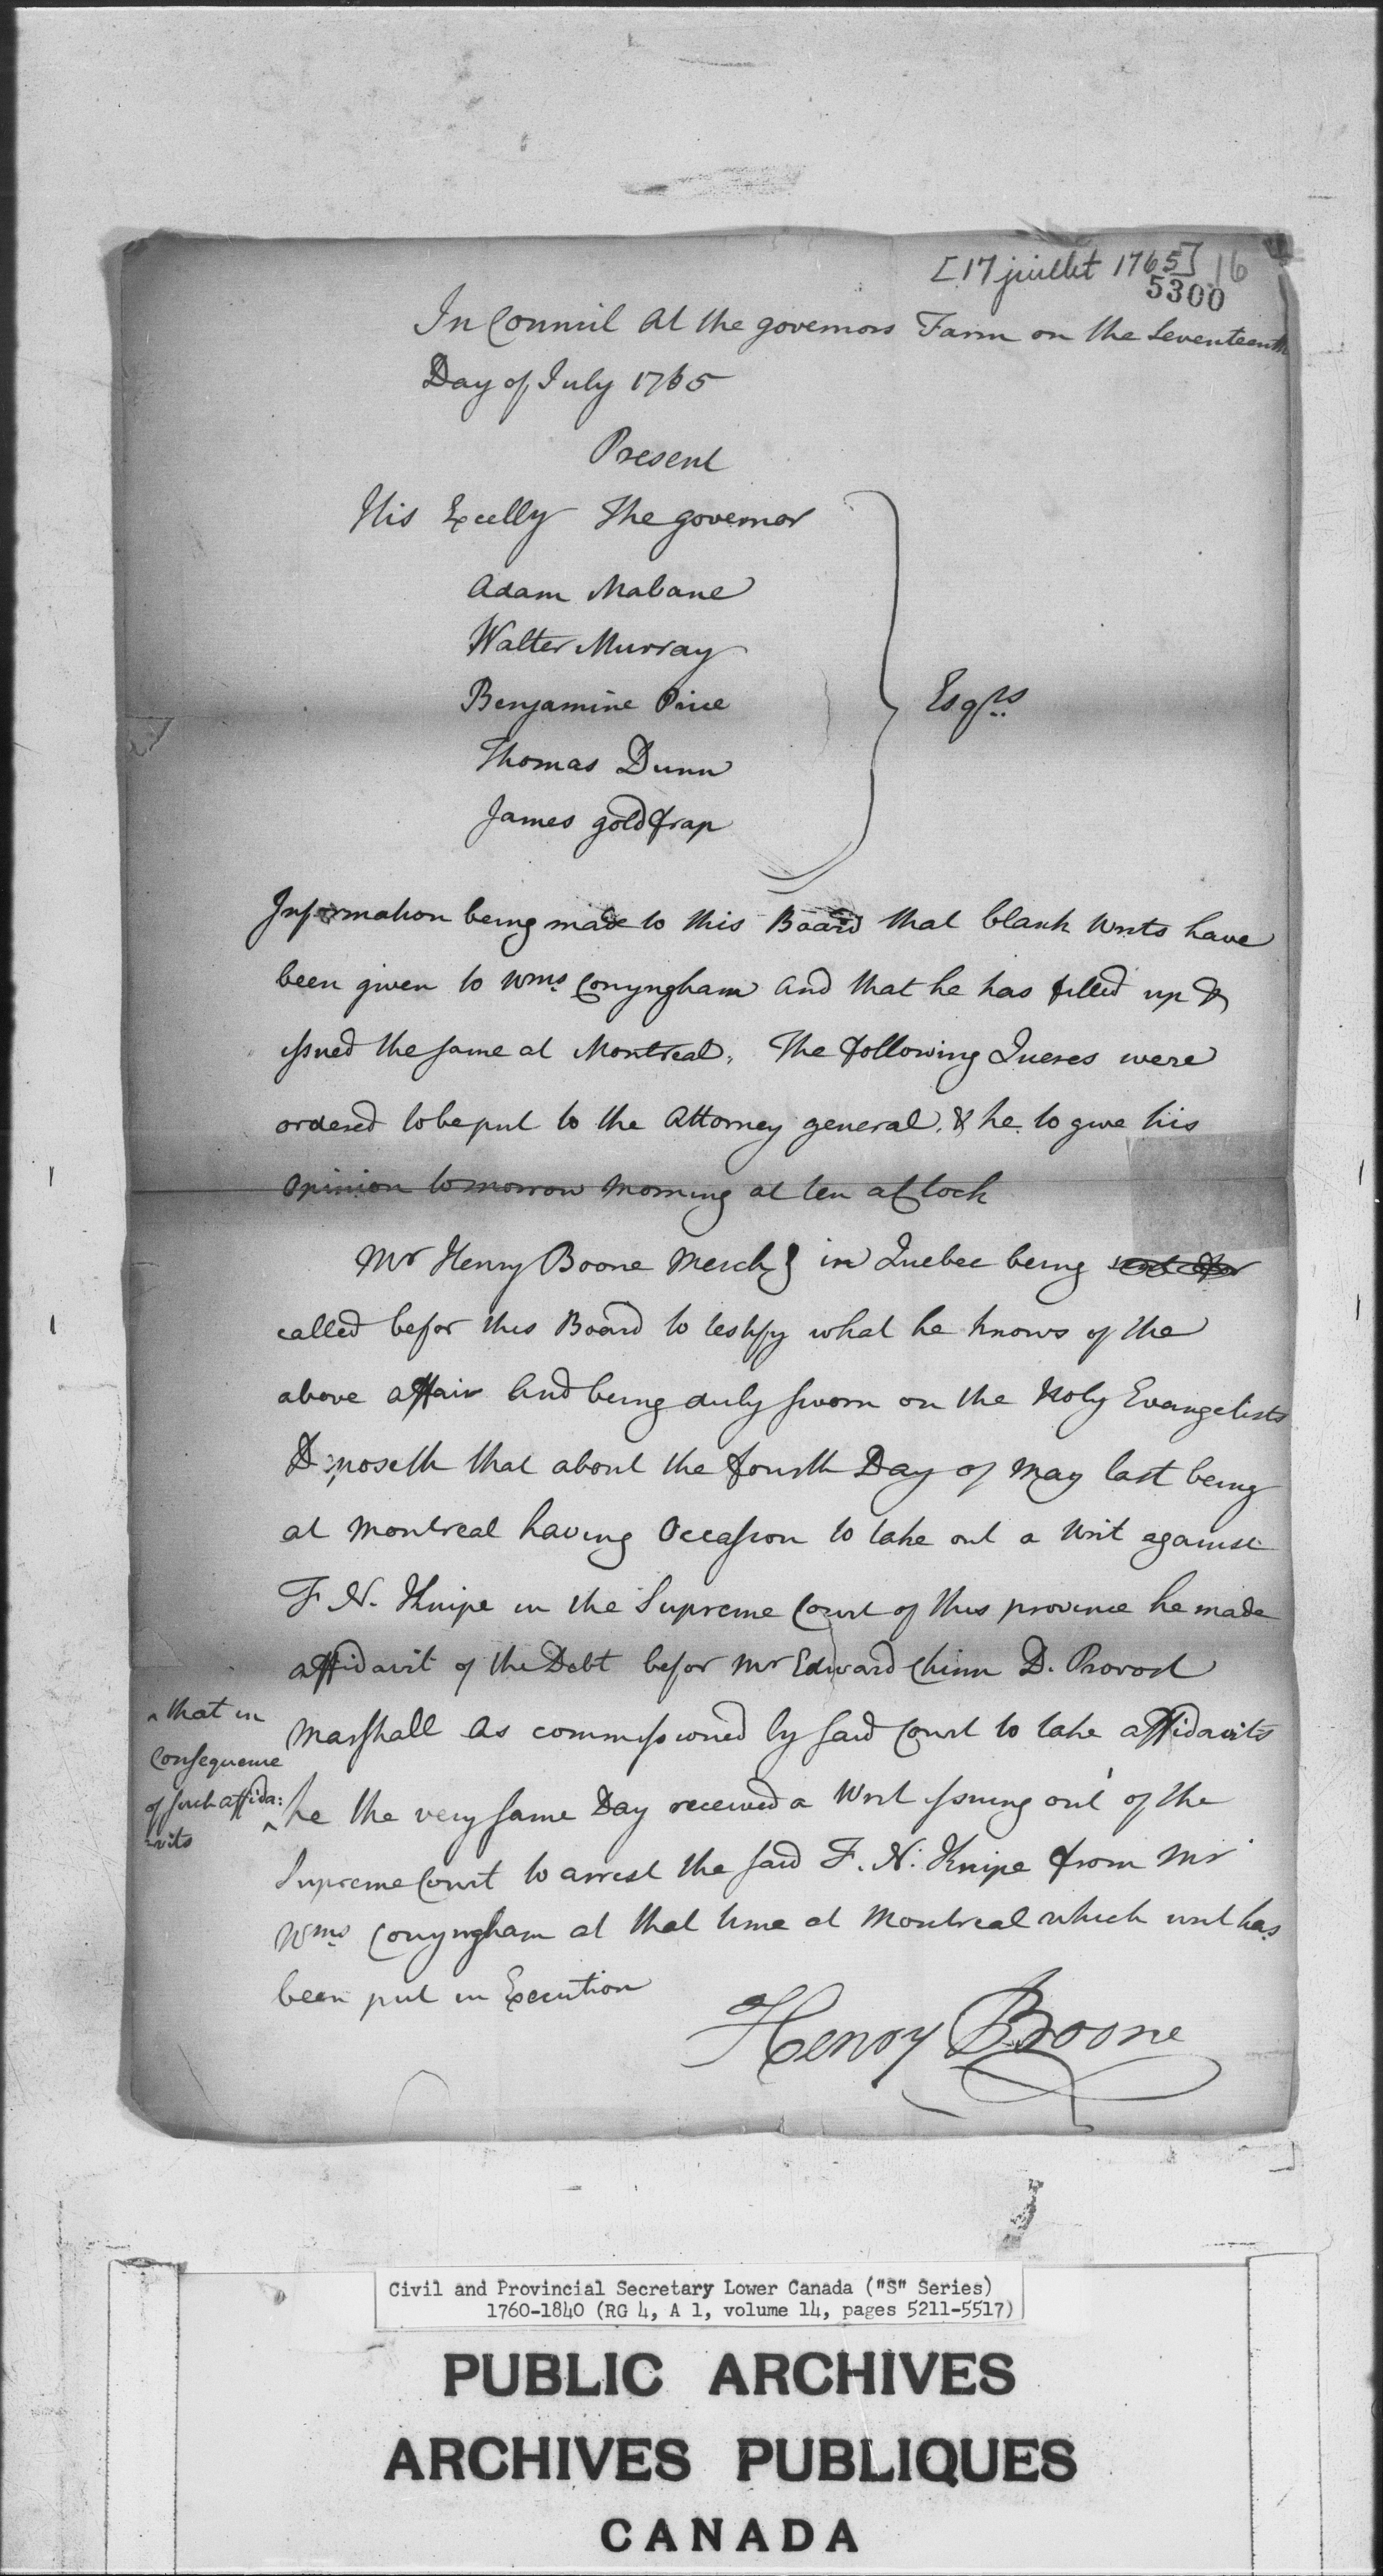 [17 juillet 1765] 16
5300
In Council at the governors Farm on the Seventeenth
Day of July 1765
Present
His Excelly The governor
Adam Mabane
Walter Murray
Benjamine Price
Thomas Dunn
James goldfrap
Esqrs
Information being made to this Board that blank Writs have
been given to Wms Conyngham and that he has filled up &
issued the same at Montreal, The following Queres were
ordered to be put to the Attorney general, & he to give his
opinion tomorrow morning at ten a Clock
Mr Henry Boone Mercht in Quebec being
called befor this Board to testify what he knows of the
above affair And being duly sworn on the Holy Evangelists
Deposeth that about the fourth Day of May last being
at Montreal having Occasion to take out a Writ against
F N. Knipe in the Supreme Court of this province he made
affidavit of the Debt befor Mr Edward Chinn D. Provost
Marshall as commissioned by said Court to take affidavits
^ that in
Consequence
of such affida:
-vits
^ he the very same Day received a Writ issuing out of the
Supreme Court to arrest the said F. N. Knipe from Mr
Wms Conyngham at that time at Montreal which writ has
been put in Execution
Henry Boone
Civil and Provincial Secretary Lower Canada ("S" Series)
1760-1840 (RG 4, A 1, volume 14, pages 5211-5517)
PUBLIC ARCHIVES
ARCHIVES PUBLIQUES
CANADA